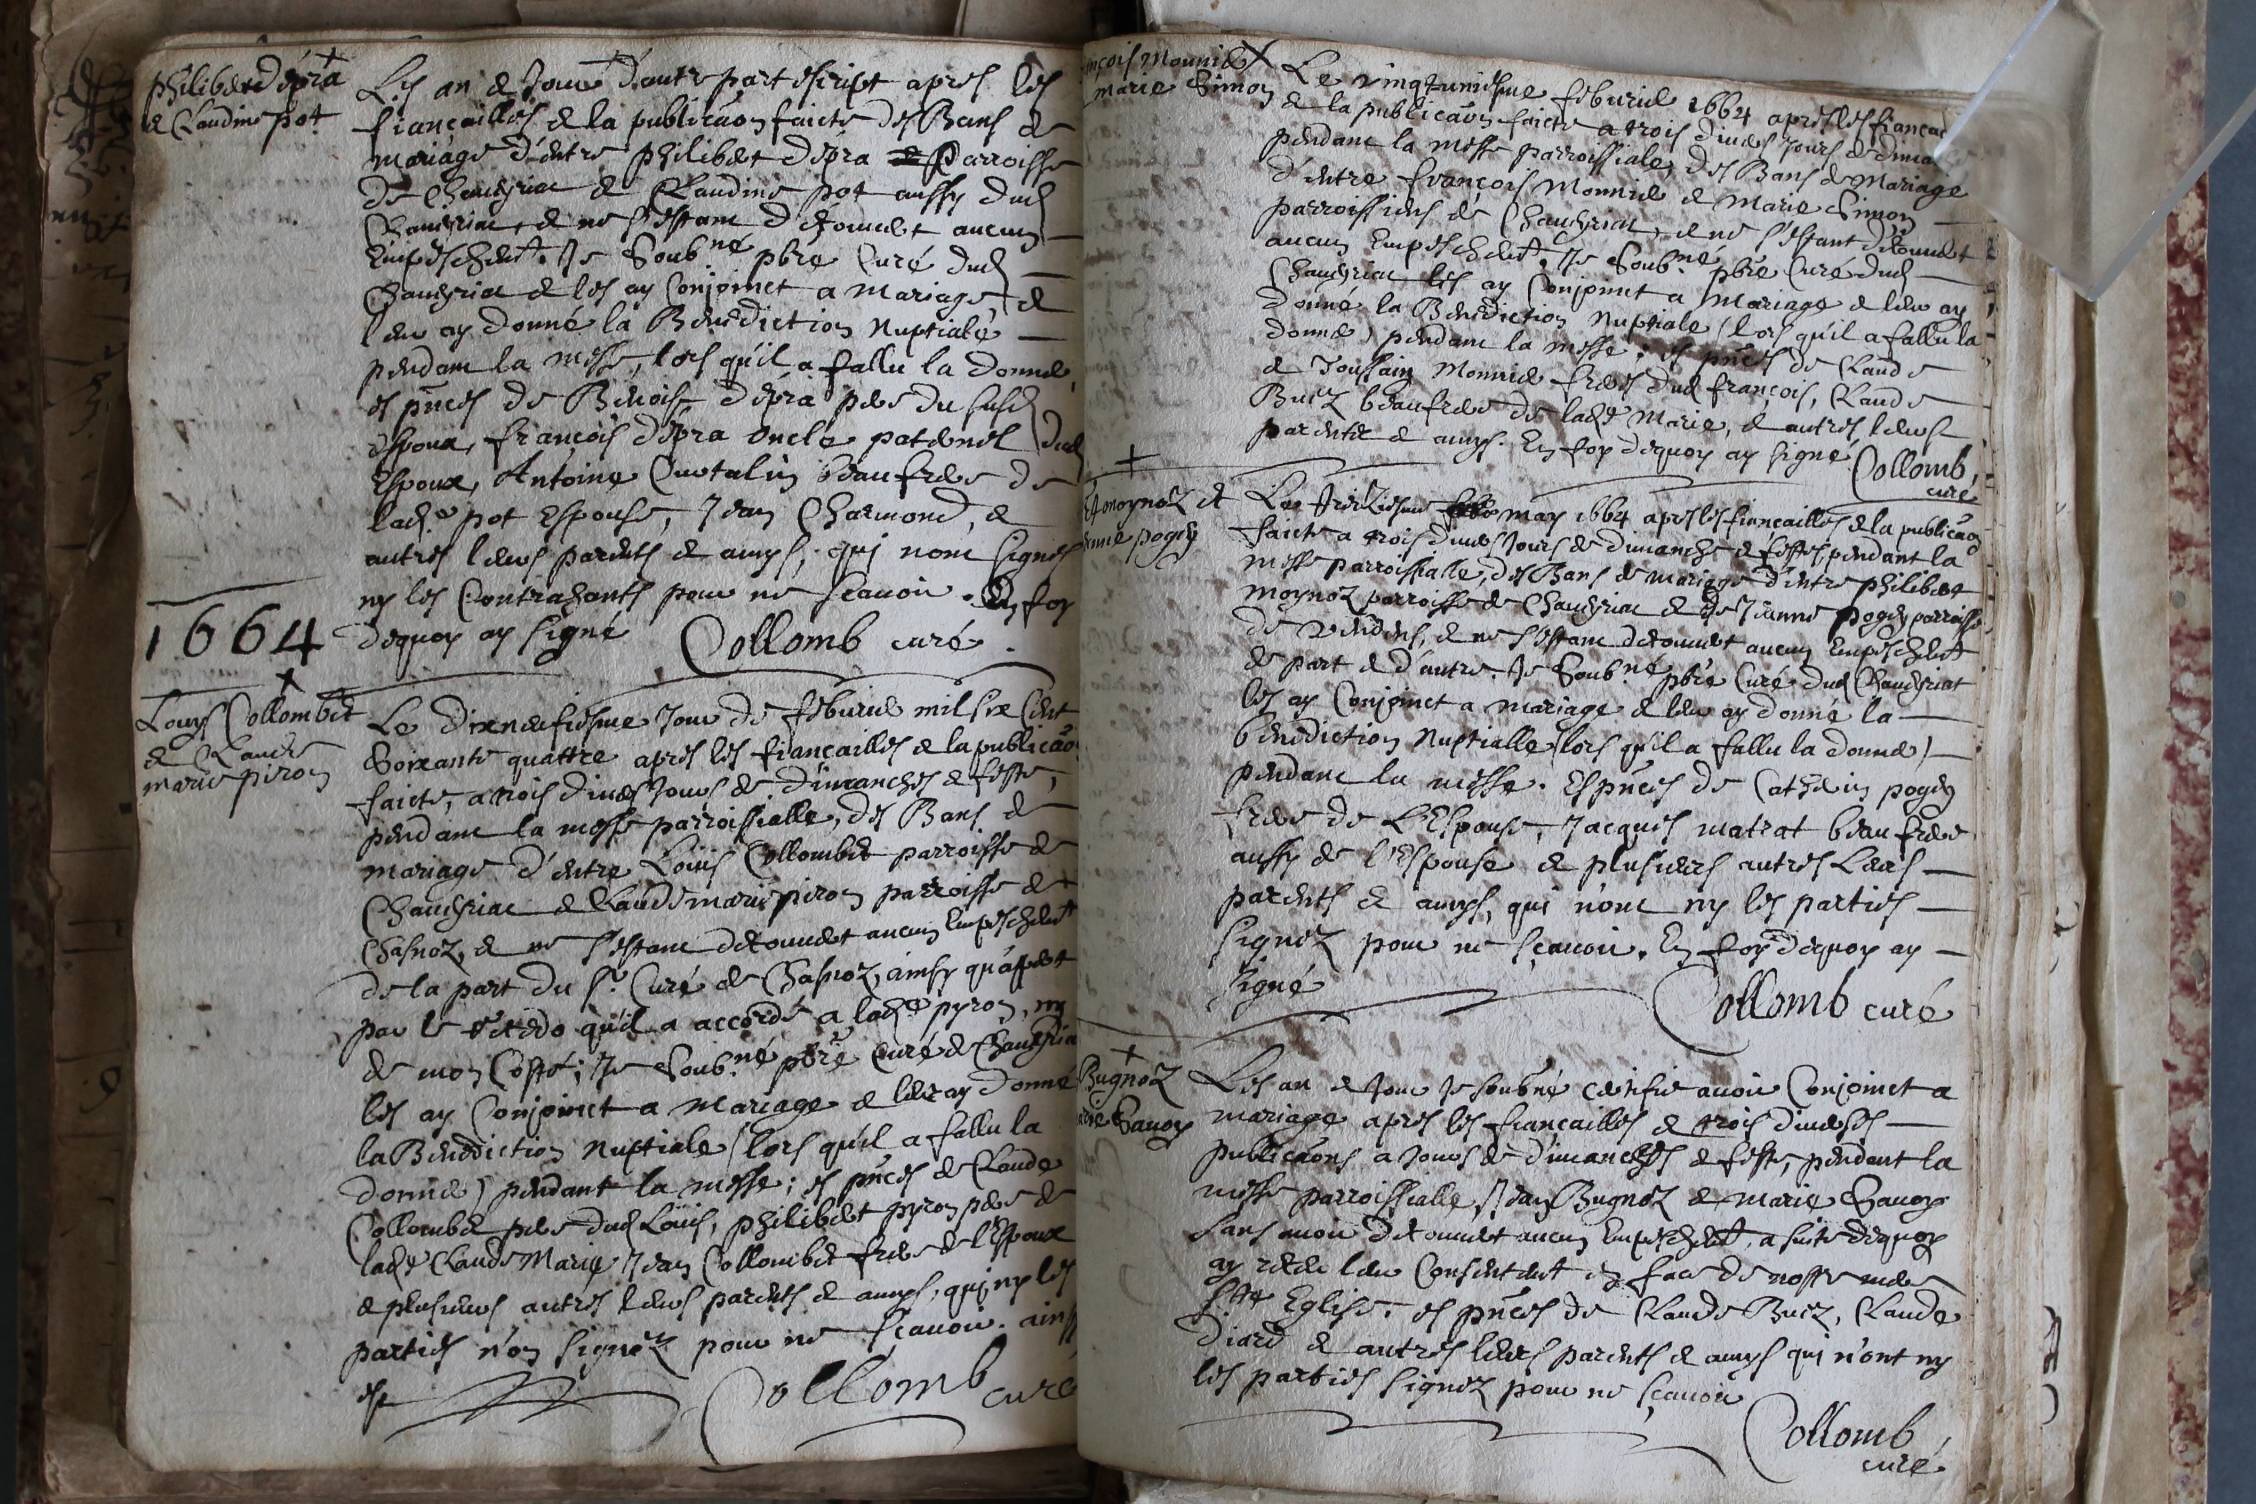 philibert dépra
et Claudine pot
Les an et Jour d'autre part escript apres les
fiançailles et la publicaõn faicte des Bans de
mariage d'entre philibert dépra parroisse
de Chaueyriat et Claudine pot aussy dud
Chaueyriat, et ne s'estant d'écouuert aucun
Empeschemt. Je Soub.né pbre Curé dud
Chaueyriat et les ay Conjoinct a mariage, et
leur ay donné la Benediction Nuptiale
pendant la messe, lors qu'il a fallu la donner,
es pnces de Benoist dépra pere du susd
espoux, françois dépra oncle paternel dud
Espoux, Antoine beaufrere de
lade pot Espouse, Jean Charmond, et
autres leurs parents et amys, qui nont Signes
ny les Contrahants pour ne scauoir. En foy
dequoy ay signé Collomb curé.
1664
Louys Collombet
et Claude
marie piron
Le dixneufiesme Jour de feburier mil six Cent
Soixante quattre apres les fiançailles et la publicaõn
faicte, a trois diuers Jours de dimanches et feste,
pendant la messe parroissialle, des Bans de
mariage d'entre Loüis Collombet parroisse de
Chaueyriat et Claude marie piron parroisse de
Chasnoz, et ne s'estant decouuert aucun Empeschemt
de la part du Sr. Curé de Chasnoz, ainsy qu'appert
par le recedo qu'il a accordé a lade pyron, ny
de mon Costé; Je Soub.né pbre Curé de Chaueyria
les ay Conjoinct a mariage et leur ay donné
la Benediction Nuptiale (lors qu'il a fallu la
donner) pendant la messe; es pnces de Claude
Collombet pere dud Loüis, philibert pyron pere de
lade Claude Marie, Jean Collombet frere de l'Espoux
et plusieurs autres leurs parents et amys, qui ny les
parties n'on signez pour ne scauoir. ainsy
est Collomb curé
nçois Monnier
marie Simon
Le vingtuniesme feburier 1664 apres les fiançai
et la publicaõn faicte a trois diuers Jours de dima
pendant la messe parroissiale, des Bans de Mariage
d'entre françois Monnier et Marie Simon
parroissiens de Chaueyriat, et ne s'estant découuert
aucun Empeschemt. Je Soub.né pbre Curé dud
Chaueyriat les ay Conjoinct a Mariage et leur ay
donné la Benediction Nuptiale (lors qu'il a fallu la
donner) pendant la messe; es pnces de Claude
et Toussain Monnier freres dud françois, Claude
Buez beaufrere de lade Marie, et autres leurs
parents et amys. En foy dequoy ay signé Collomb,
curé
moynoz et
anne pogey
Le treiziesme may 1664 apres les fiançailles et la publicaõn
faicte a trois diuers Jours de dimanche et festes pendant la
messe parroissialle, des Bans de mariage d'entre philibert
moynoz parroisse de Chaueyriat et de Jeanne pogey parroisse
de vendens, et ne s'estant decouuert aucun Empeschemt
de part et d'autre. Je Soub.né pbre Curé dud Chaueyriat
les ay Conjoinct a mariage et leur ay donné la
benediction Nuptialle (lors qu'il a fallu la donner)
pendant la messe. Es pnces de Catherin pogey
frere de L'Espouse, Jacques matrat beaufrere
aussy de l'Espouse et plusieurs autres Leurs
parents et amys, qui n'ont ny les parties
signez pour ne sçauoir. En foy dequoy ay
signé
Collomb curé
Bugnoz
arie Sauoy
Les an et Jour Je soubné certifie auoir Conjoinct a
mariage apres les fiancailles et trois diuerses
publicaõns a Jours de dimanches et feste, pendant la
messe parroissialle, Jean Bugnoz et marie Sauoy
sans auoir decouuert aucun Empeschemt, a suite dequoy
ay receu leur Consentemt en face de nostre mere
Ste Eglise; es pnces de Claude Buez, Claude
diard et autres leurs parents et amys qui n'ont ny
les parties signez pour ne sçauoir
Collomb
curé